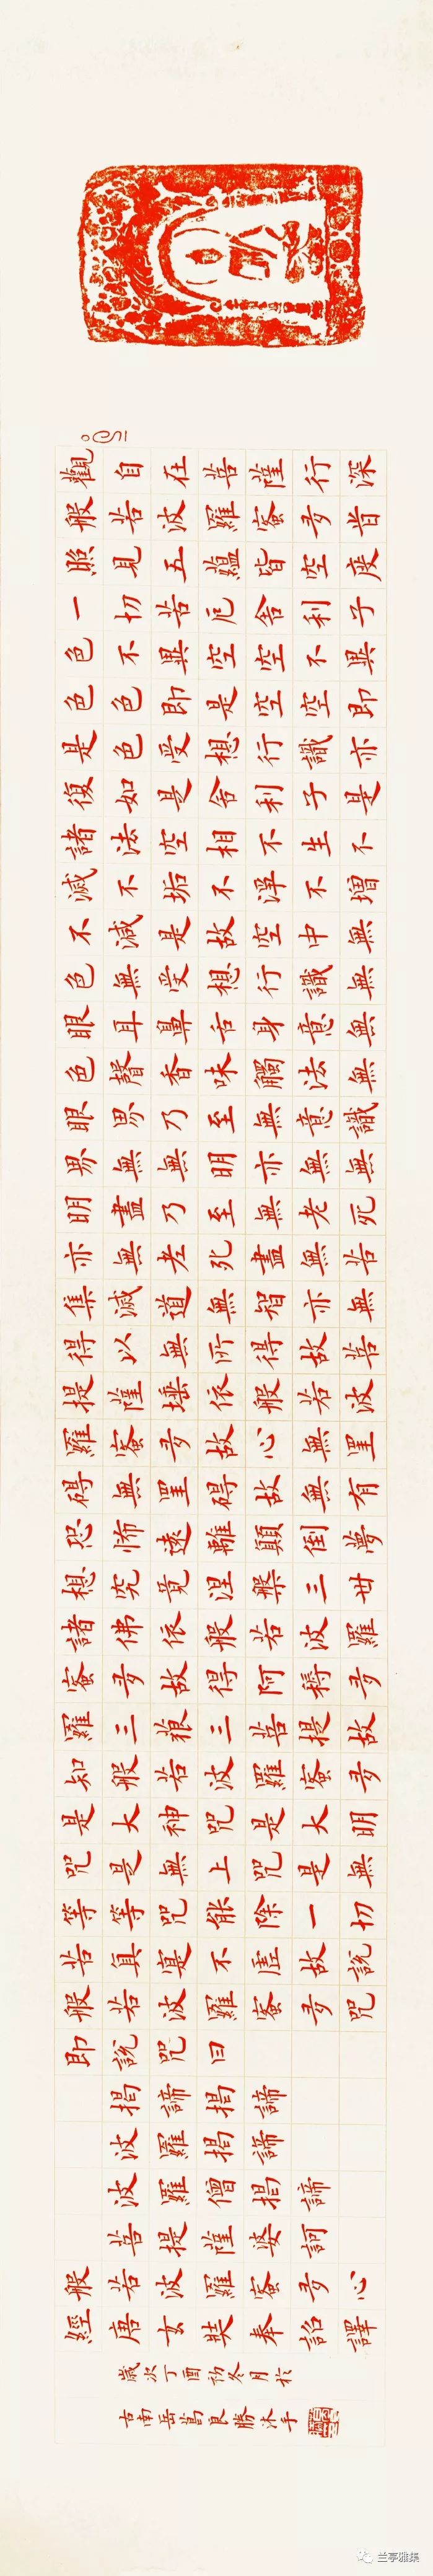 觀自在菩薩行深
般若波羅蜜多旹
照見五蘊皆空度
一切苦厄舍利子
色不異空空不異
色色即是空空即
是色受想行識亦
復如是舍利子是
諸法空相不生不
滅不垢不淨不增
不減是故空中無
色無受想行識無
眼耳鼻舌身意無
色聲香味觸法無
眼界乃至無意識
界無無明亦無無
明盡乃至無老死
亦無老死盡無苦
集滅道無智亦無
得以無所得故菩
提薩埵依般若波
羅蜜多故心無罣
碍無罣碍故無有
恐怖遠離顛倒夢
想究竟涅槃三世
諸佛依般若波羅
蜜多故得阿耨多
羅三藐三菩提故
知般若波羅蜜多
是大神咒是大明
咒是無上咒是無
等等咒能除一切
苦真寔不虛故說
般若波羅蜜多咒
即說咒曰
揭諦揭諦
波羅揭諦
波羅僧揭諦
菩提薩婆訶
般若波羅蜜多心
經唐玄奘奉詔譯
歲次丁酉初冬月於
古南岳葛良勝沐手
兰亭雅集